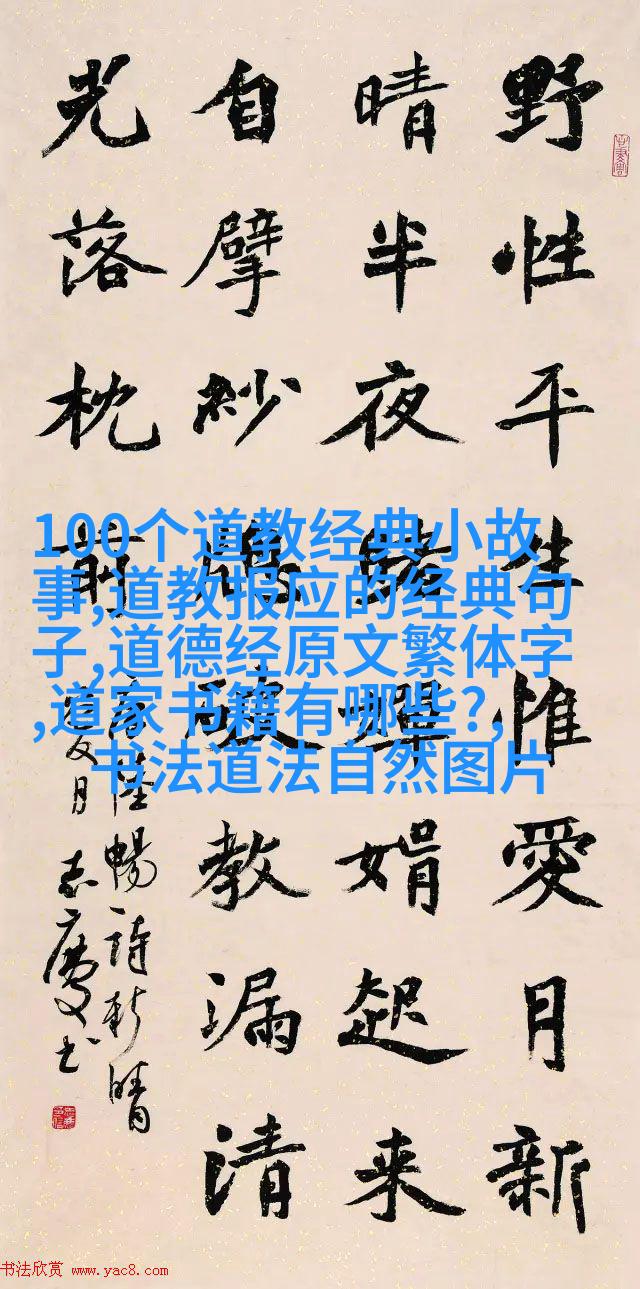 野性平生惟愛月新
晴半夜睹嬋娟起来
自擘紗窗破教漏清
光落枕前
唐陸暢詩新晴
愛月 志慶书
100个道教经典小故
事,道教报应的经典句
子,道德经原文繁体字
,道家书籍有哪些?,
书法道法自然图片
书法欣赏 www.yac8.com